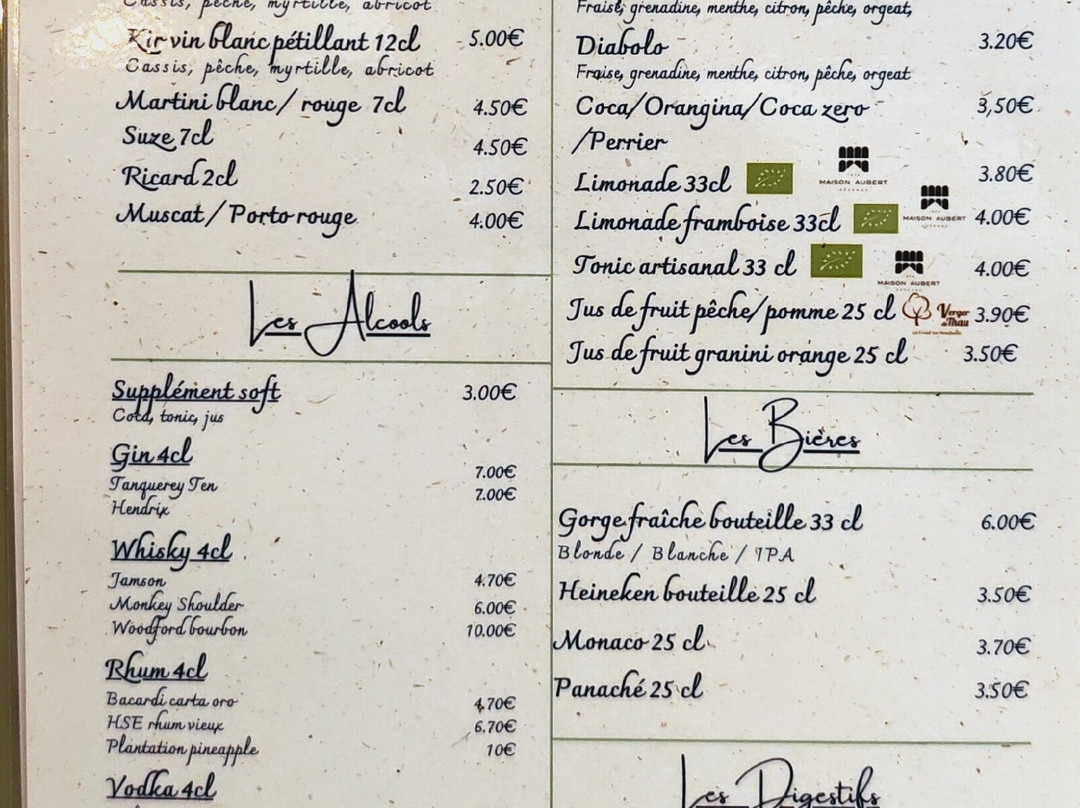 Cassis, pêche, myrtille, abricot
Kir vin blanc pétillant 12cl 5.00€
Cassis, pêche, myrtille, abricot
Martini blanc/ rouge 7cl 4.50€
Suze 7cl 4.50€
Ricard 2cl 2.50€
Muscat/ Porto rouge 4.00€
Les Alcools
Supplément soft 3.00€
Coca, tonic, jus
Gin 4cl
7.00€
Tanquerey Ten
7.00€
Hendrix
Whisky 4cl
Jamson 4.70€
Monkey Shoulder 6.00€
Woodford bourbon 10.00€
Rhum 4cl
Bacardi carta oro 4.70€
HSE rhum vieux 6.70€
Plantation pineapple 10€
Vodka 4cl
Fraise, grenadine, menthe, citron, pêche, orgeat,
Diabolo 3.20€
Fraise, grenadine, menthe, citron, pêche, orgeat
Coca/Orangina/Coca zero 3,50€
/Perrier
Limonade 33cl MAISON AUBERT 3.80€
Limonade framboise 33cl MAISON AUBERT 4.00€
Tonic artisanal 33 cl MAISON AUBERT 4.00€
Jus de fruit pêche/pomme 25 cl Verger de Thau 3.90€
Jus de fruit granini orange 25 cl 3.50€
Les Bières
Gorge fraîche bouteille 33 cl 6.00€
Blonde / Blanche / IPA
Heineken bouteille 25 cl 3.50€
Monaco 25 cl 3.70€
Panaché 25 cl 3.50€
Les Digestifs